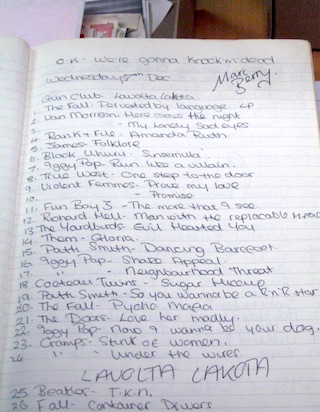 O.K - We're gonna knock 'n' dead
Wednesday Dec.
Marc Berry.
Gun Club - Lavolta Lakota.
1. The Fall - Perverted by language LP
2. Van Morrison - Here comes the night
3. " - My lonely sad eyes
4. Rank + File - Amanda Ruth
5. James - Folklore
6. Black Uhuru - Sinsemilla
7. Iggy Pop - Run like a villain.
8. True West - One step to the door
9. Violent Femmes - Prove my love
10. " - Promise
11. Fun Boy 3 - The more that I see.
12 Richard Hell - Man with the replaceable Head
13. The Yardbirds - Evil Hearted You
14 - Them - Gloria
15. Patti Smith - Dancing Barefoot.
16 Iggy Pop - Shake Appeal.
17. " - Neighbourhood Threat
18 Cocteau Twins - Sugar Hiccup
19. Patti Smith - So you wanna be a R'n'R star
20 The Fall - Pycho Mafia
21 The Doors - Love her madly.
22 Iggy Pop - Now I wanna be your dog.
23. Cramps - Stink of women.
24 " - Under the wires
LAVOLTA LAKOTA
25. Beatles - T.k.n.
26 Fall - Container Drivers